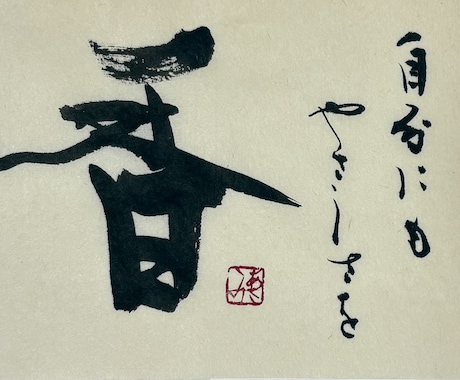 自分にも
やさしさを
香